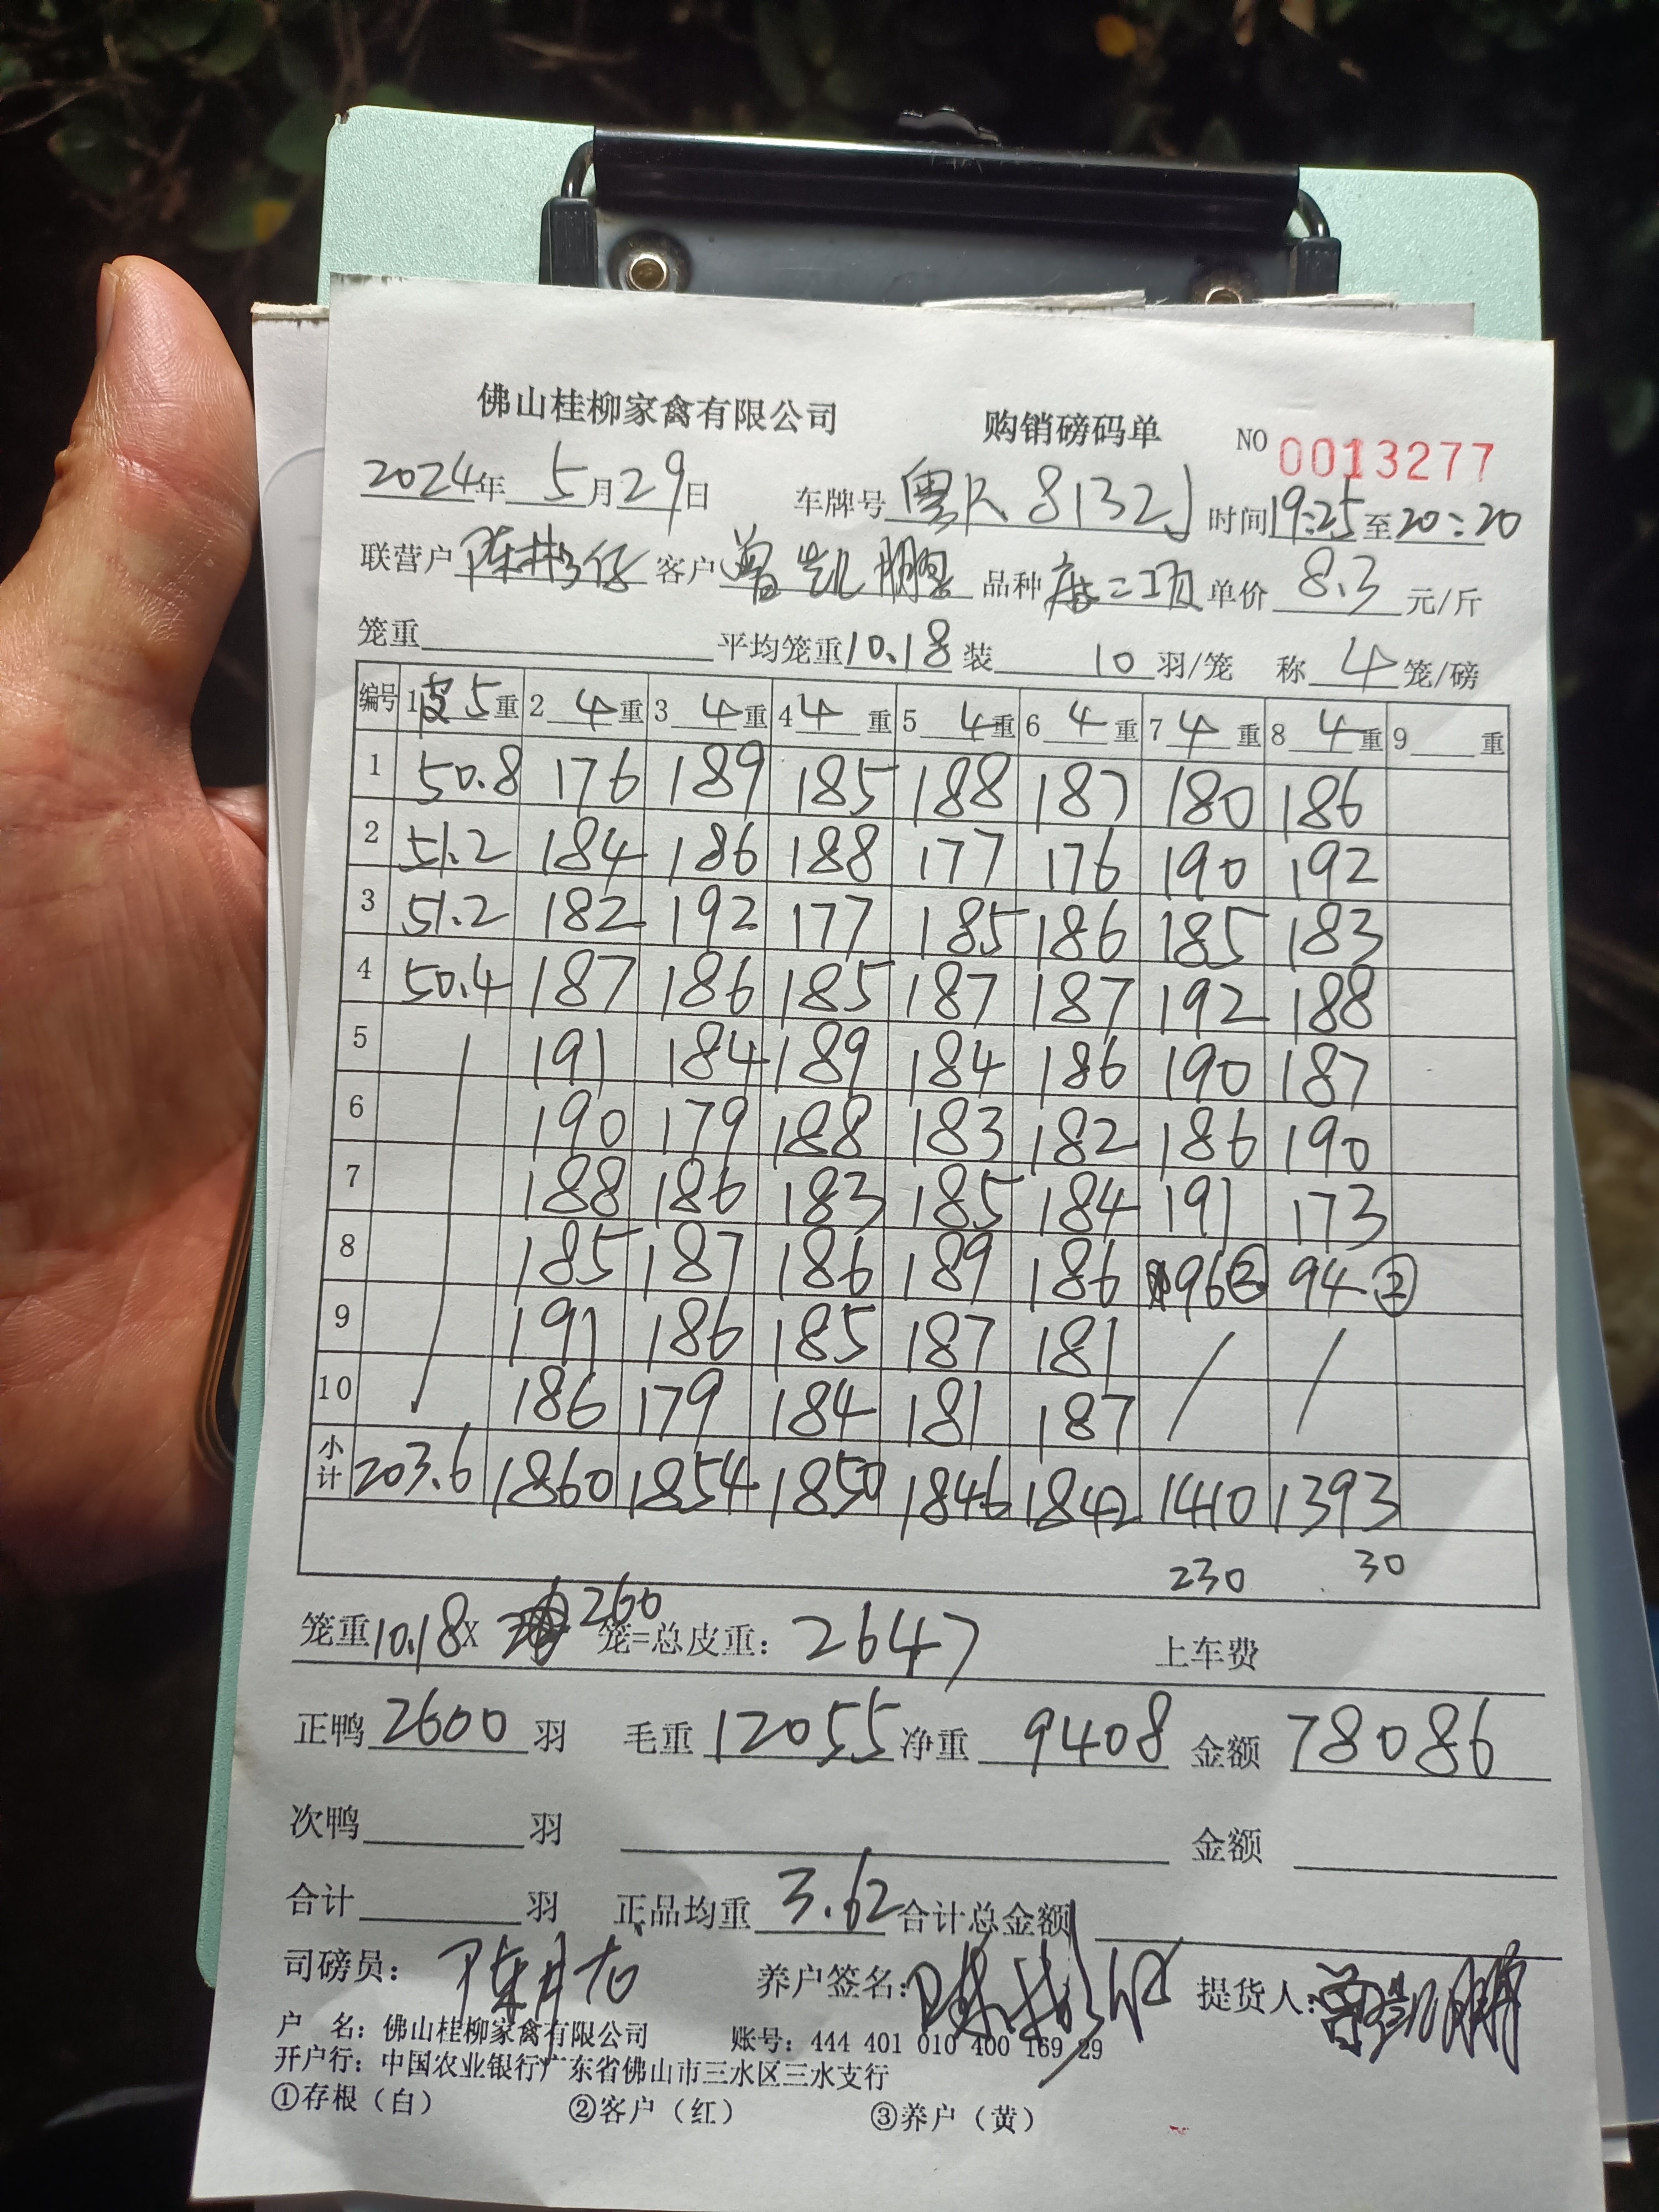 佛山桂柳家禽有限公司 购销磅码单 NO 0013277
2024年 5月29日 车牌号 粤R 8132J 时间19:25至20:20
联营户 陈彬仔 客户 曾凯鹏 品种 单价 8.3 元/斤
笼重 平均笼重10.18 装 10 羽/笼 称 4 笼/磅
编号 1皮5重 2 4重 3 4重 4 4 重 5 4重 6 4重 7 4重 8 4重 9 重
1 50.8 176 189 185 188 187 180 186
2 51.2 184 186 188 177 176 190 192
3 51.2 182 192 177 185 186 185 183
4 50.4 187 186 185 187 187 192 188
5 191 184 189 184 186 190 187
6 190 179 188 183 182 186 190
7 188 186 183 185 184 191 173
8 185 187 186 189 186 96② 94②
9 191 186 185 187 181 / /
10 186 179 184 181 187
小计 203.6 1860 1854 1850 1846 1842 1410 1393
230 30
笼重10.18X 260 笼=总皮重: 2647 上车费
正鸭 2600 羽 毛重 12055 净重 9408 金额 78086
次鸭 羽 金额
合计 羽 正品均重 3.62 合计总金额
司磅员: 养户签名: 陈彬仔 提货人: 曾凯鹏
户 名: 佛山桂柳家禽有限公司 账号: 444 401 010 400 169 29
开户行: 中国农业银行广东省佛山市三水区三水支行
①存根（白） ②客户（红） ③养户（黄）